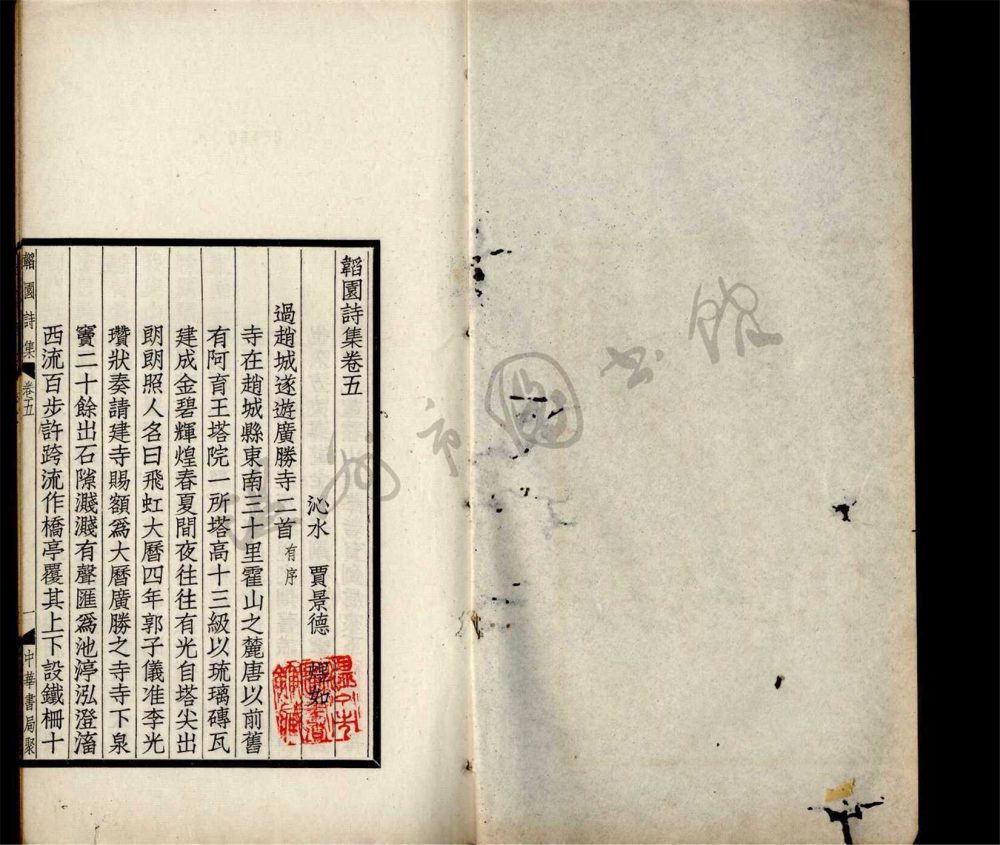 韜園詩集卷五
沁水 賈景德 煜如
過趙城遂遊廣勝寺二首有序
寺在趙城縣東南三十里霍山之麓唐以前舊
有阿育王塔院一所塔高十三級以琉璃磚瓦
建成金碧輝煌春夏間夜往往有光自塔尖出
朗朗照人名曰飛虹大曆四年郭子儀准李光
瓚狀奏請建寺賜額爲大曆廣勝之寺寺下泉
竇二十餘出石隙濺濺有聲匯爲池渟泓澄滀
西流百步許跨流作橋亭覆其上下設鐵柵十
韜園詩集 卷五 一 中華書局聚
溫州市圖書館